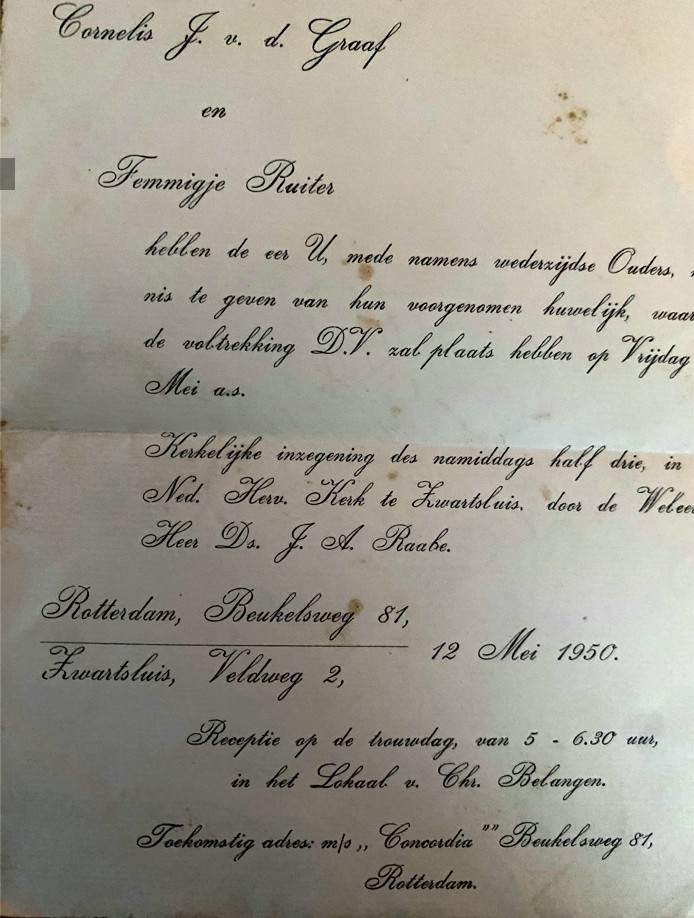 Cornelis J. v. d. Graaf
en
Femmigje Ruiter
hebben de eer U, mede namens wederzijdse Ouders,
nis te geven van hun voorgenomen huwelijk, waar
de voltrekking D.V. zal plaats hebben op Vrijdag
Mei a.s.
Kerkelijke inzegening des namiddags half drie, in
Ned. Herv. Kerk te Zwartsluis. door de Weleer
Heer Ds. J. A. Raabe.
Rotterdam, Beukelsweg 81,
12 Mei 1950.
Zwartsluis, Veldweg 2,
Receptie op de trouwdag, van 5 - 6.30 uur,
in het Lokaal v. Chr. Belangen.
Toekomstig adres: m/s ,, Concordia "" Beukelsweg 81,
Rotterdam.